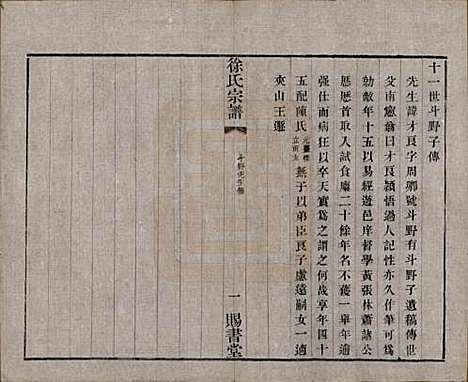 十一世斗野子傳
先生諱才良字周卿號斗野有斗野子遺稿傳世
艾南憲翁曰才良穎悟過人記性亦久作筆可成
勍敵年十五以易經遊邑庠督學黃張林蕭諸公
咸歷首取入試食廩二十餘年名不獲一舉年適
強仕而病狂以卒天實為之謂之何哉享年四十
五配陳氏 無子以弟臣良子慮遠嗣女一適
夾山王
徐氏宗譜
斗野先生傳
一
賜書堂